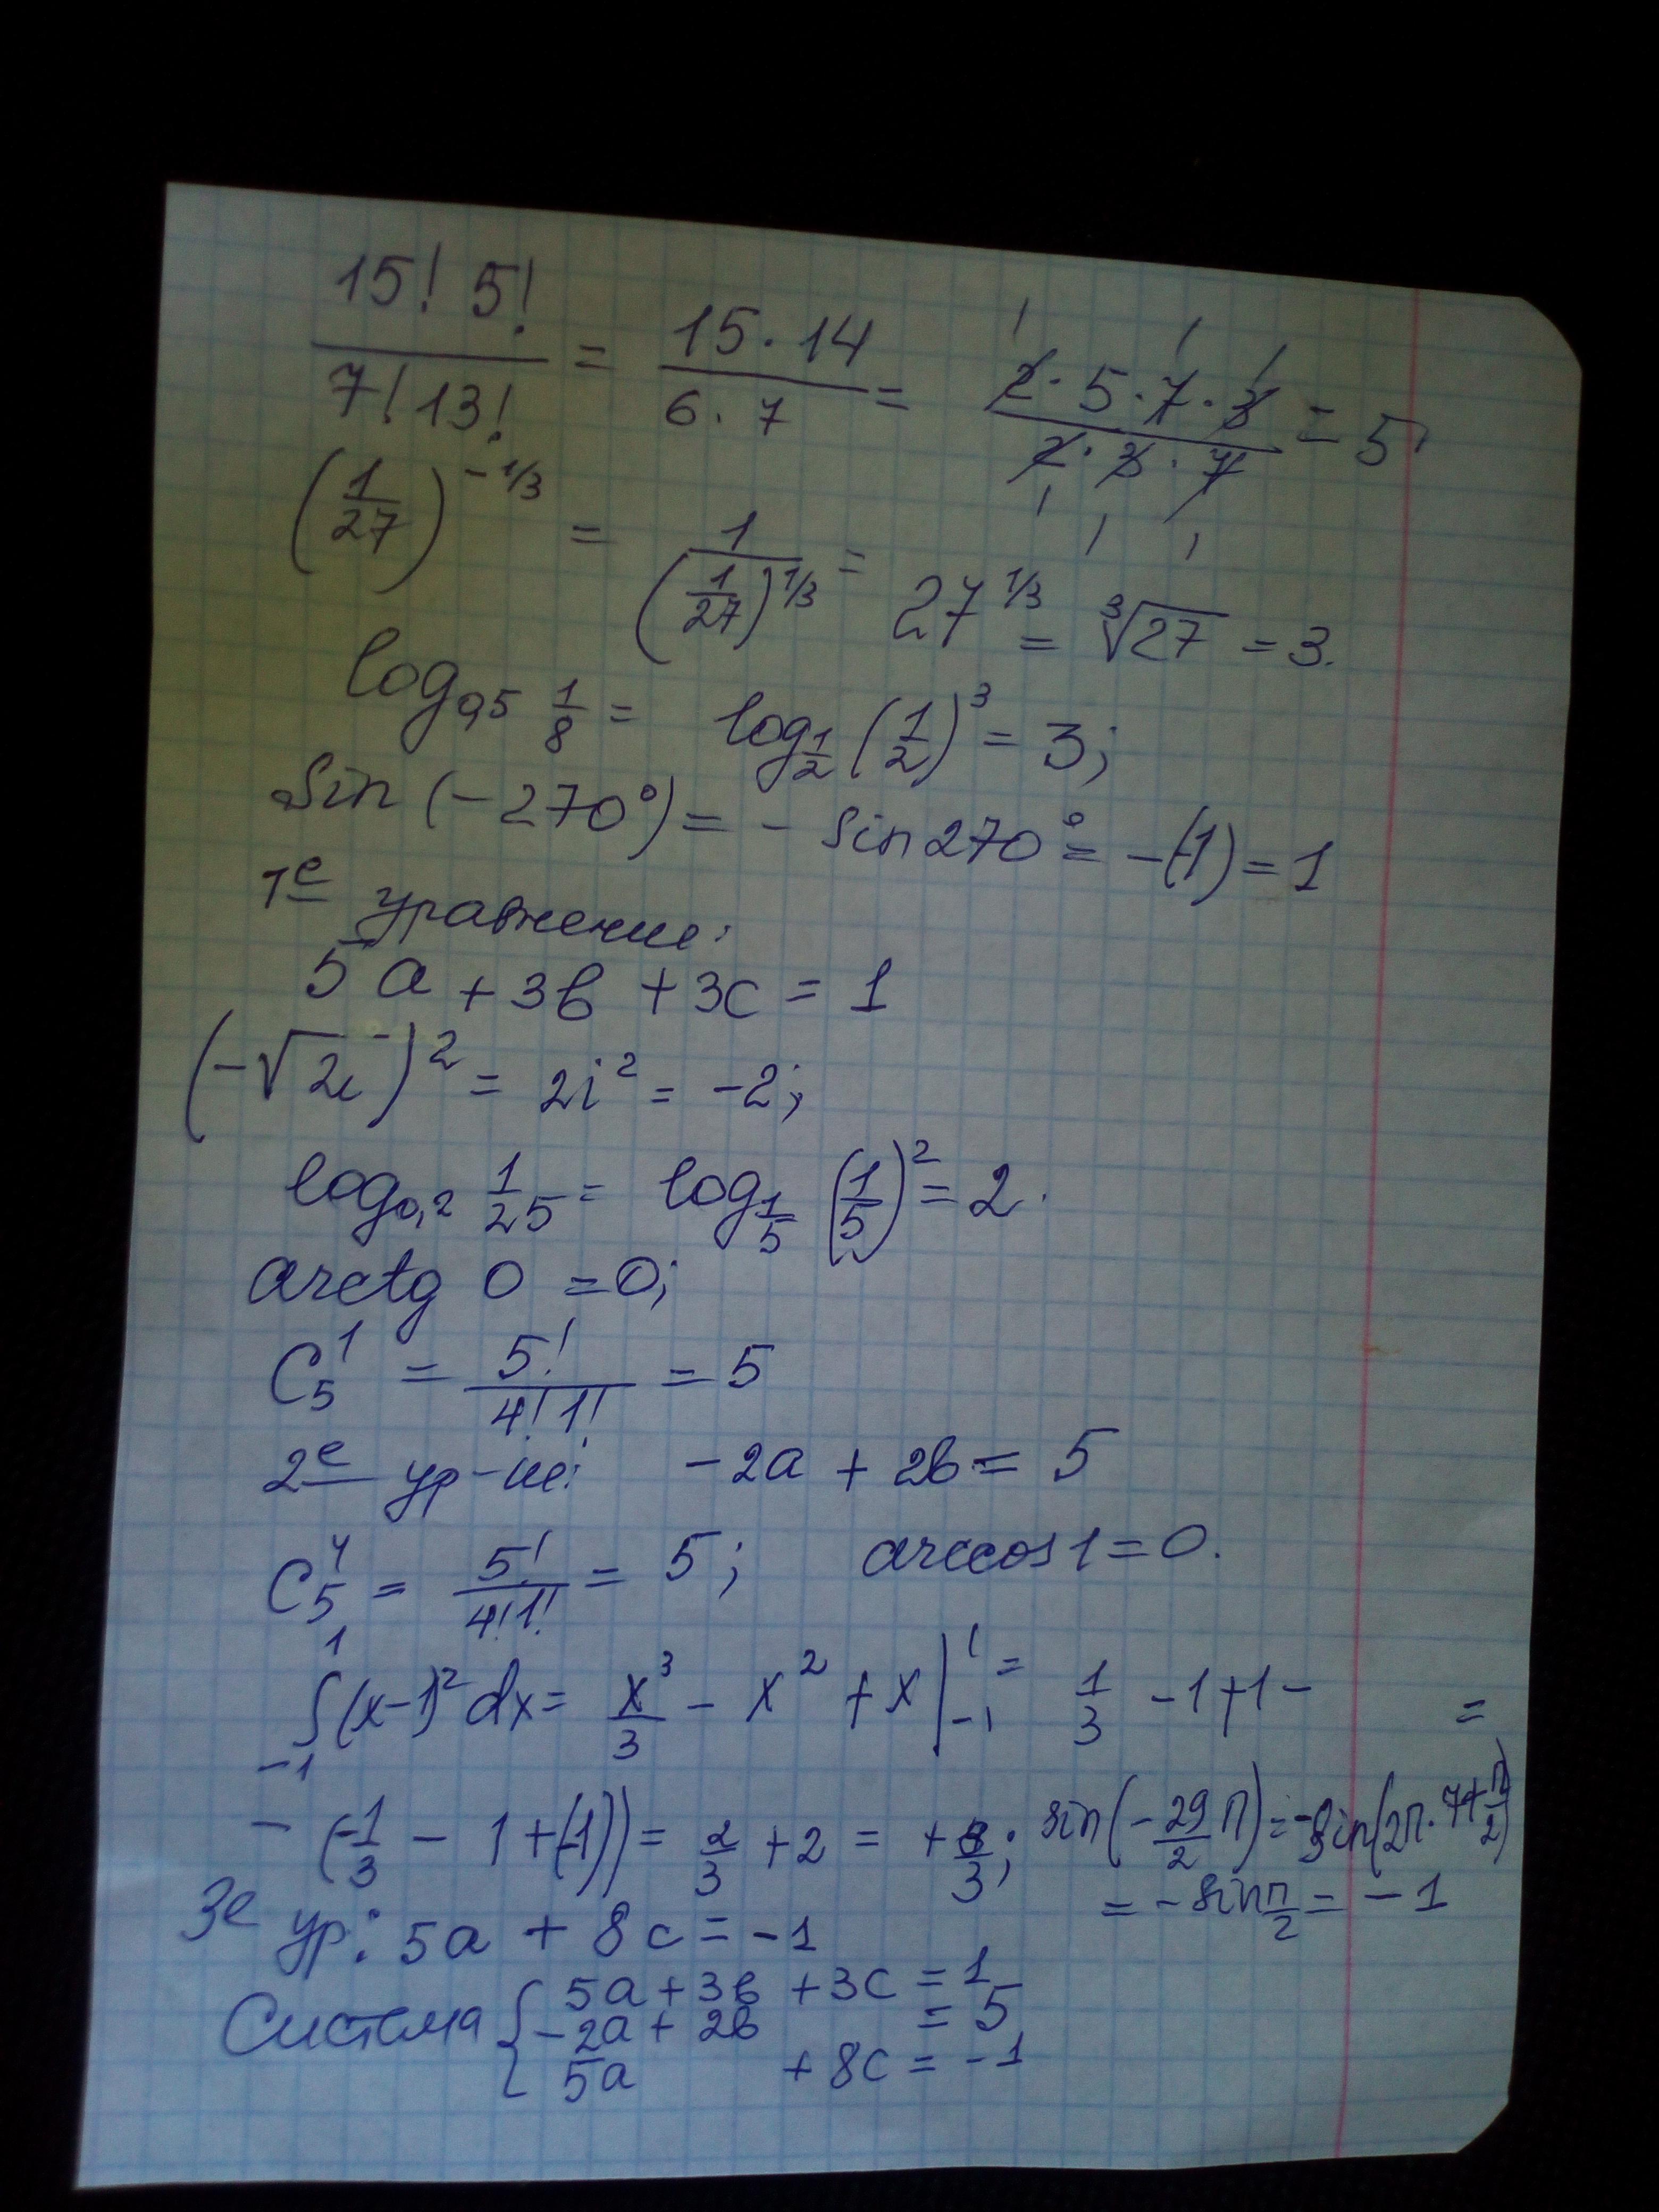 15! 5! / 7! 13! = 15 · 14 / 6 · 7 = 2 · 5 · 7 · 3 / 2 · 3 · 7 = 5
(1/27)^(-1/3) = 1 / (1/27)^(1/3) = 27^(1/3) = ∛27 = 3.
log_0,5 1/8 = log_1/2 (1/2)^3 = 3;
Sin (-270°) = - sin 270° = -(-1) = 1
1е уравнение:
5a + 3в + 3c = 1
(-√2i)^2 = 2i^2 = -2;
log_0,2 1/25 = log_1/5 (1/5)^2 = 2.
arctg 0 = 0;
C_5^1 = 5! / 4! 1! = 5
2е ур-ие: -2a + 2в = 5
C_5^4 = 5! / 4! 1! = 5; arccos 1 = 0.
∫_-1^1 (x-1)^2 dx = x^3/3 - x^2 + x |_-1^1 = 1/3 - 1 + 1 - =
- (-1/3 - 1 + (-1)) = 2/3 + 2 = + 8/3; sin(-29/2 π) = -sin(2π · 7 + π/2)
= - sin π/2 = - 1
3е ур: 5a + 8c = -1
Система { 5a + 3в + 3c = 1
-2a + 2в = 5
5a + 8c = -1